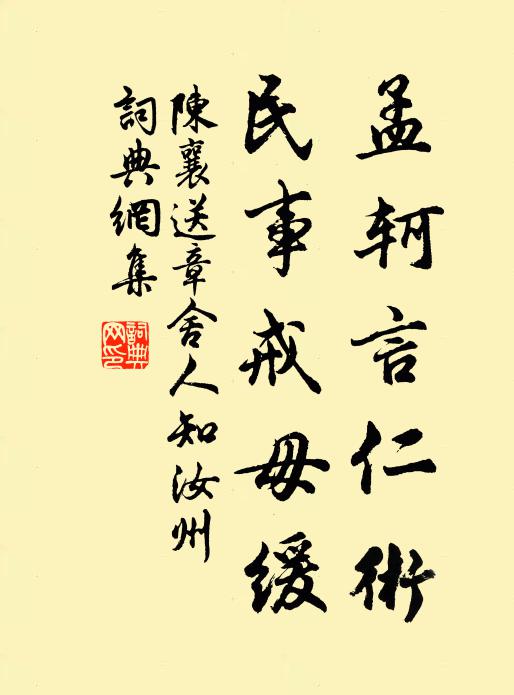 孟軻言仁術
民事戒毋緩
陳襄送章舍人知汝州
詞典網集
詞典網印